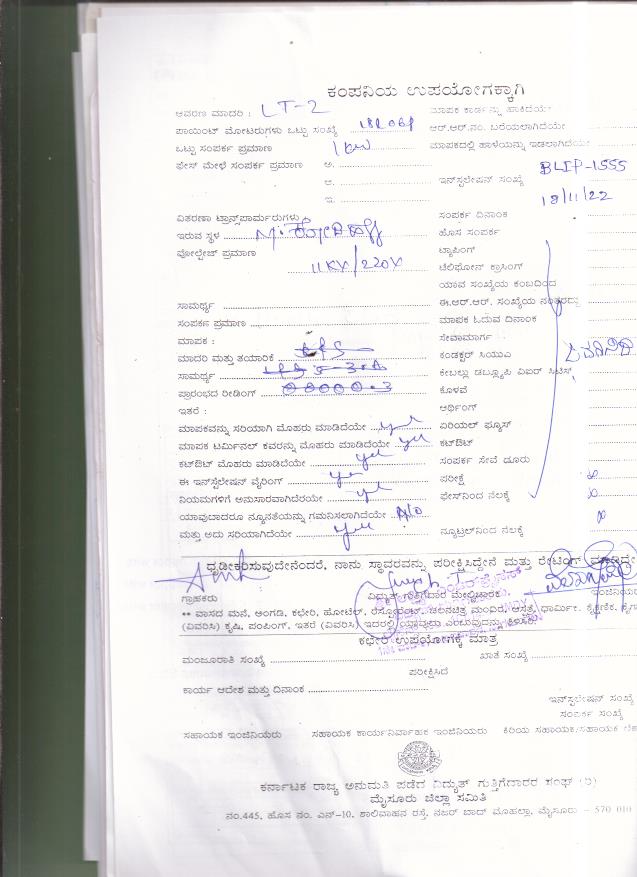 ಕಂಪನಿಯ ಉಪಯೋಗಕ್ಕಾಗಿ
ಆವರಣ ಮಾದರಿ : LT-2 ಮಾಪಕ ಕಾರ್ಡನ್ನು ಹಾಕಿದೆಯೇ
ಪಾಯಿಂಟ್ ಮೋಟರುಗಳು ಒಟ್ಟು ಸಂಖ್ಯೆ ಆರ್.ಆರ್.ನಂ. ಬರೆಯಲಾಗಿದೆಯೇ
ಒಟ್ಟು ಸಂಪರ್ಕ ಪ್ರಮಾಣ 1kw ಮಾಪಕದಲ್ಲಿ ಹಾಳೆಯನ್ನು ಇಡಲಾಗಿದೆಯೇ
ಫೇಸ್ ಮೇಳೆ ಸಂಪರ್ಕ ಪ್ರಮಾಣ ಅ.
ಆ. ಇನ್‌ಸ್ಟಲೇಷನ್ ಸಂಖ್ಯೆ BLIP-1555
ಇ. 18/11/22
ವಿತರಣಾ ಟ್ರಾನ್ಸ್‌ಪಾರ್ಮರುಗಳು ಸಂಪರ್ಕ ದಿನಾಂಕ
ಇರುವ ಸ್ಥಳ ಹೊಸ ಸಂಪರ್ಕ
ವೋಲ್ಟೇಜ್ ಪ್ರಮಾಣ ಟ್ಯಾಪಿಂಗ್
11KV/220V ಟೆಲಿಫೋನ್ ಕ್ರಾಸಿಂಗ್
ಯಾವ ಸಂಖ್ಯೆಯ ಕಂಬದಿಂದ
ಸಾಮರ್ಥ್ಯ ಈ.ಆರ್.ಆರ್. ಸಂಖ್ಯೆಯ ನಂತರದ್ದು
ಸಂಪರ್ಕ ಪ್ರಮಾಣ ಮಾಪಕ ಓದುವ ದಿನಾಂಕ
ಮಾಪಕ : ಸೇವಾಮಾರ್ಗ
ಮಾದರಿ ಮತ್ತು ತಯಾರಿಕೆ ಕಂಡಕ್ಟರ್ ಸಿಯುಎ
ಸಾಮರ್ಥ್ಯ ಕೇಬಲ್ಲು ಡಬ್ಲ್ಯೂಪಿ ವಿಐರ್ ಸಿಟಿಸ್
ಪ್ರಾರಂಭದ ರೀಡಿಂಗ್ 00000.3 ಕೊಳವೆ
ಇತರೆ : ಅರ್ಥಿಂಗ್
ಮಾಪಕವನ್ನು ಸರಿಯಾಗಿ ಮೊಹರು ಮಾಡಿದೆಯೇ yes ಏರಿಯಲ್ ಫ್ಯೂಸ್
ಮಾಪಕ ಟರ್ಮಿನಲ್ ಕವರನ್ನು ಮೊಹರು ಮಾಡಿದೆಯೇ yes ಕಟ್‌ಔಟ್
ಕಟ್‌ಔಟ್ ಮೊಹರು ಮಾಡಿದೆಯೇ yes ಸಂಪರ್ಕ ಸೇವೆ ದೂರು
ಈ ಇನ್‌ಸ್ಟಲೇಷನ್ ವೈರಿಂಗ್ yes ಪರೀಕ್ಷೆ
ನಿಯಮಗಳಿಗೆ ಅನುಸಾರವಾಗಿದೆರಯೇ yes ಫೇಸ್‌ನಿಂದ ನೆಲಕ್ಕೆ
ಯಾವುಬಾದರೂ ನ್ಯೂನತೆಯನ್ನು ಗಮನಿಸಲಾಗಿದೆಯೇ No
ಮತ್ತು ಅದು ಸರಿಯಾಗಿದೆಯೇ yes ನ್ಯೂಟ್ರಲ್‌ನಿಂದ ನೆಲಕ್ಕೆ
ಧೃಡೀಕರಿಸುವುದೇನೆಂದರೆ, ನಾನು ಸ್ಥಾವರವನ್ನು ಪರೀಕ್ಷಿಸಿದ್ದೇನೆ ಮತ್ತು ರೇಟಿಂಗ್
ಗ್ರಾಹಕರು ವಿದ್ಯುತ್ ಗುತ್ತಿಗೆದಾರ ಮೇಲ್ವಿಚಾರಕ ಇಂಜಿನಿಯರ
** ವಾಸದ ಮನೆ, ಅಂಗಡಿ, ಕಛೇರಿ, ಹೋಟೆಲ್, ರೆಸ್ಟೋರೆಂಟ್, ಚಲನಚಿತ್ರ ಮಂದಿರ, ಆಸ್ಪತ್ರೆ, ಧಾರ್ಮಿಕ
(ವಿವರಿಸಿ) ಕೃಷಿ, ಪಂಪಿಂಗ್, ಇತರೆ (ವಿವರಿಸಿ) ಇದರಲ್ಲಿ ಯಾವುದು ಎಂಬುವುದನ್ನು ತಿಳಿಸಿ
ಕಛೇರಿ ಉಪಯೋಗಕ್ಕೆ ಮಾತ್ರ
ಮಂಜೂರಾತಿ ಸಂಖ್ಯೆ ಖಾತೆ ಸಂಖ್ಯೆ
ಪರೀಕ್ಷಿಸಿದೆ
ಕಾರ್ಯ ಆದೇಶ ಮತ್ತು ದಿನಾಂಕ
ಇನ್‌ಸ್ಟಲೇಷನ್ ಸಂಖ್ಯೆ
ಸಂಪರ್ಕ ಸಂಖ್ಯೆ
ಸಹಾಯಕ ಇಂಜಿನಿಯರು ಸಹಾಯಕ ಕಾರ್ಯನಿರ್ವಾಹಕ ಇಂಜಿನಿಯರು ಕಿರಿಯ ಸಹಾಯಕ/ಸಹಾಯಕ
ಕರ್ನಾಟಕ ರಾಜ್ಯ ಅನುಮತಿ ಪಡೆದ ವಿದ್ಯುತ್ ಗುತ್ತಿಗೆದಾರರ ಸಂಘ (ರಿ)
ಮೈಸೂರು ಜಿಲ್ಲಾ ಸಮಿತಿ
ನಂ.445, ಹೊಸ ನಂ. ಎನ್-10, ಶಾಲಿವಾಹನ ರಸ್ತೆ, ನಜರ್ ಬಾದ್ ಮೊಹಲ್ಲಾ, ಮೈಸೂರು - 570 010